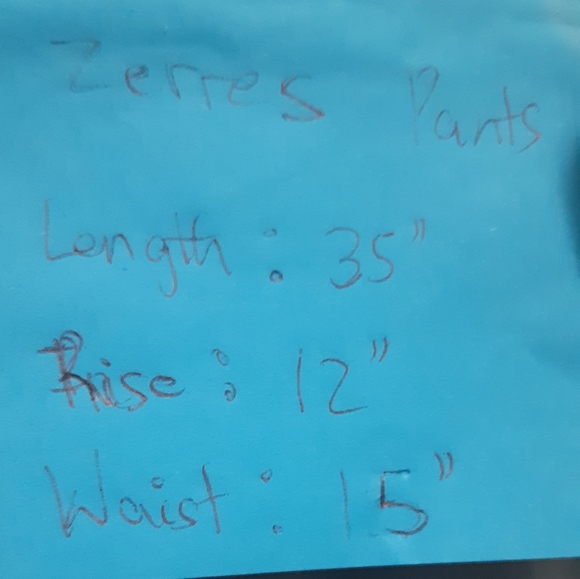 Zerres Pants
Length: 35"
Rise: 12"
Waist: 15"